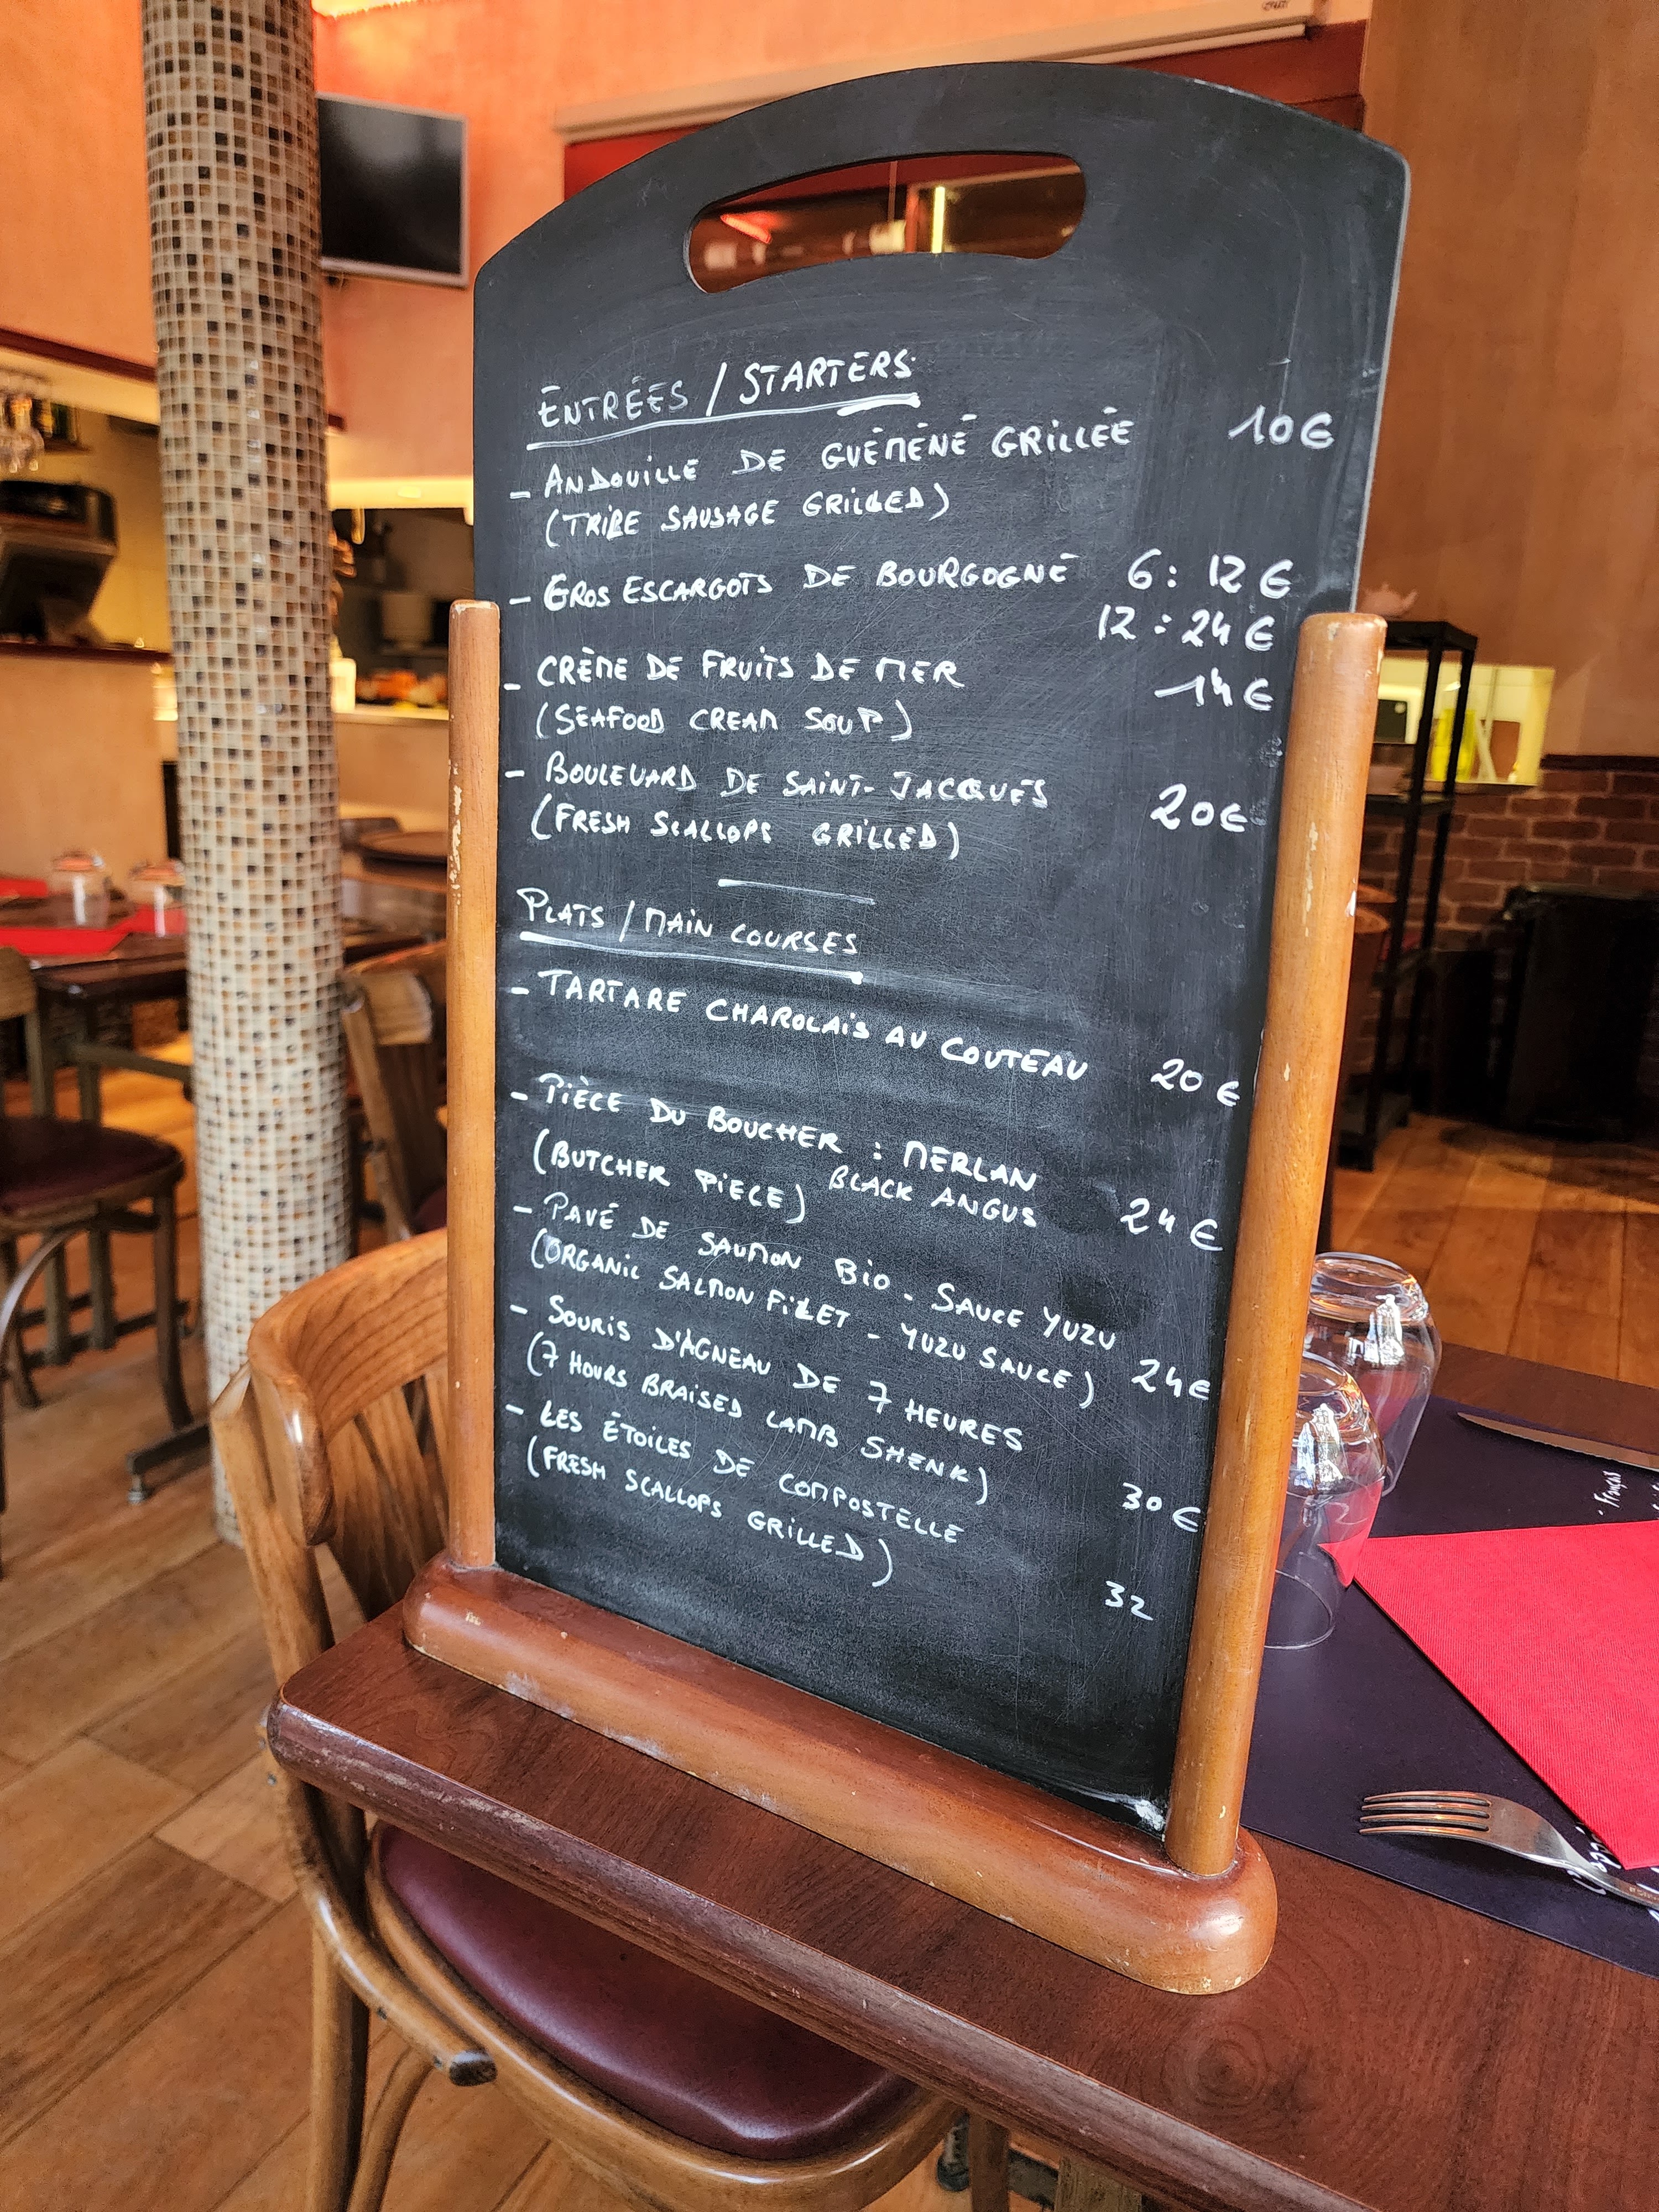 ENTRÉES / STARTERS
- ANDOUILLE DE GUÉMÉNÉ GRILLÉE 10€
(TRIPE SAUSAGE GRILLED)
- GROS ESCARGOTS DE BOURGOGNE 6: 12€
12: 24€
- CRÈME DE FRUITS DE MER 14€
(SEAFOOD CREAM SOUP)
- BOULEVARD DE SAINT-JACQUES 20€
(FRESH SCALLOPS GRILLED)
PLATS / MAIN COURSES
- TARTARE CHAROLAIS AU COUTEAU 20€
- PIÈCE DU BOUCHER : MERLAN
(BUTCHER PIECE) BLACK ANGUS 24€
- PAVÉ DE SAUMON BIO - SAUCE YUZU
(ORGANIC SALMON FILET - YUZU SAUCE) 24€
- SOURIS D'AGNEAU DE 7 HEURES
(7 HOURS BRAISED LAMB SHENK) 30€
- LES ÉTOILES DE COMPOSTELLE
(FRESH SCALLOPS GRILLED) 32